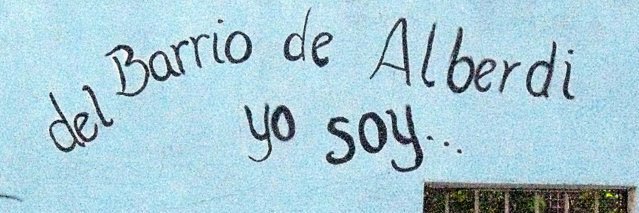 del Barrio de Alberdi
yo soy...